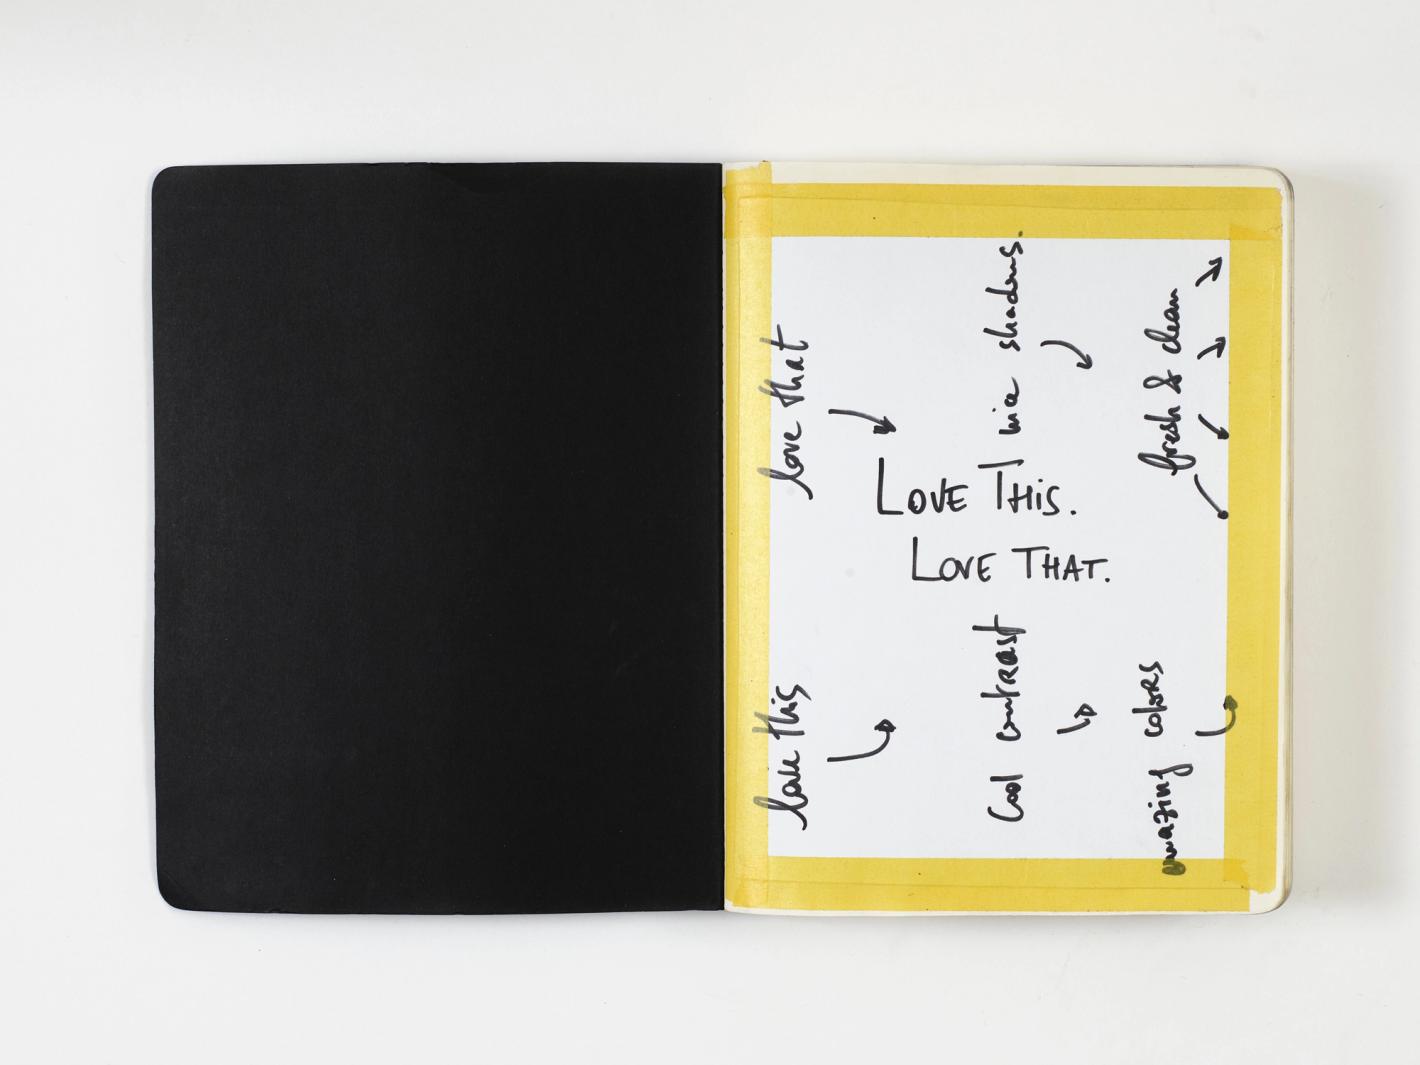 LOVE THIS.
LOVE THAT.
love this
love that
Cool contrast
nice shadows.
amazing colors
fresh & clean